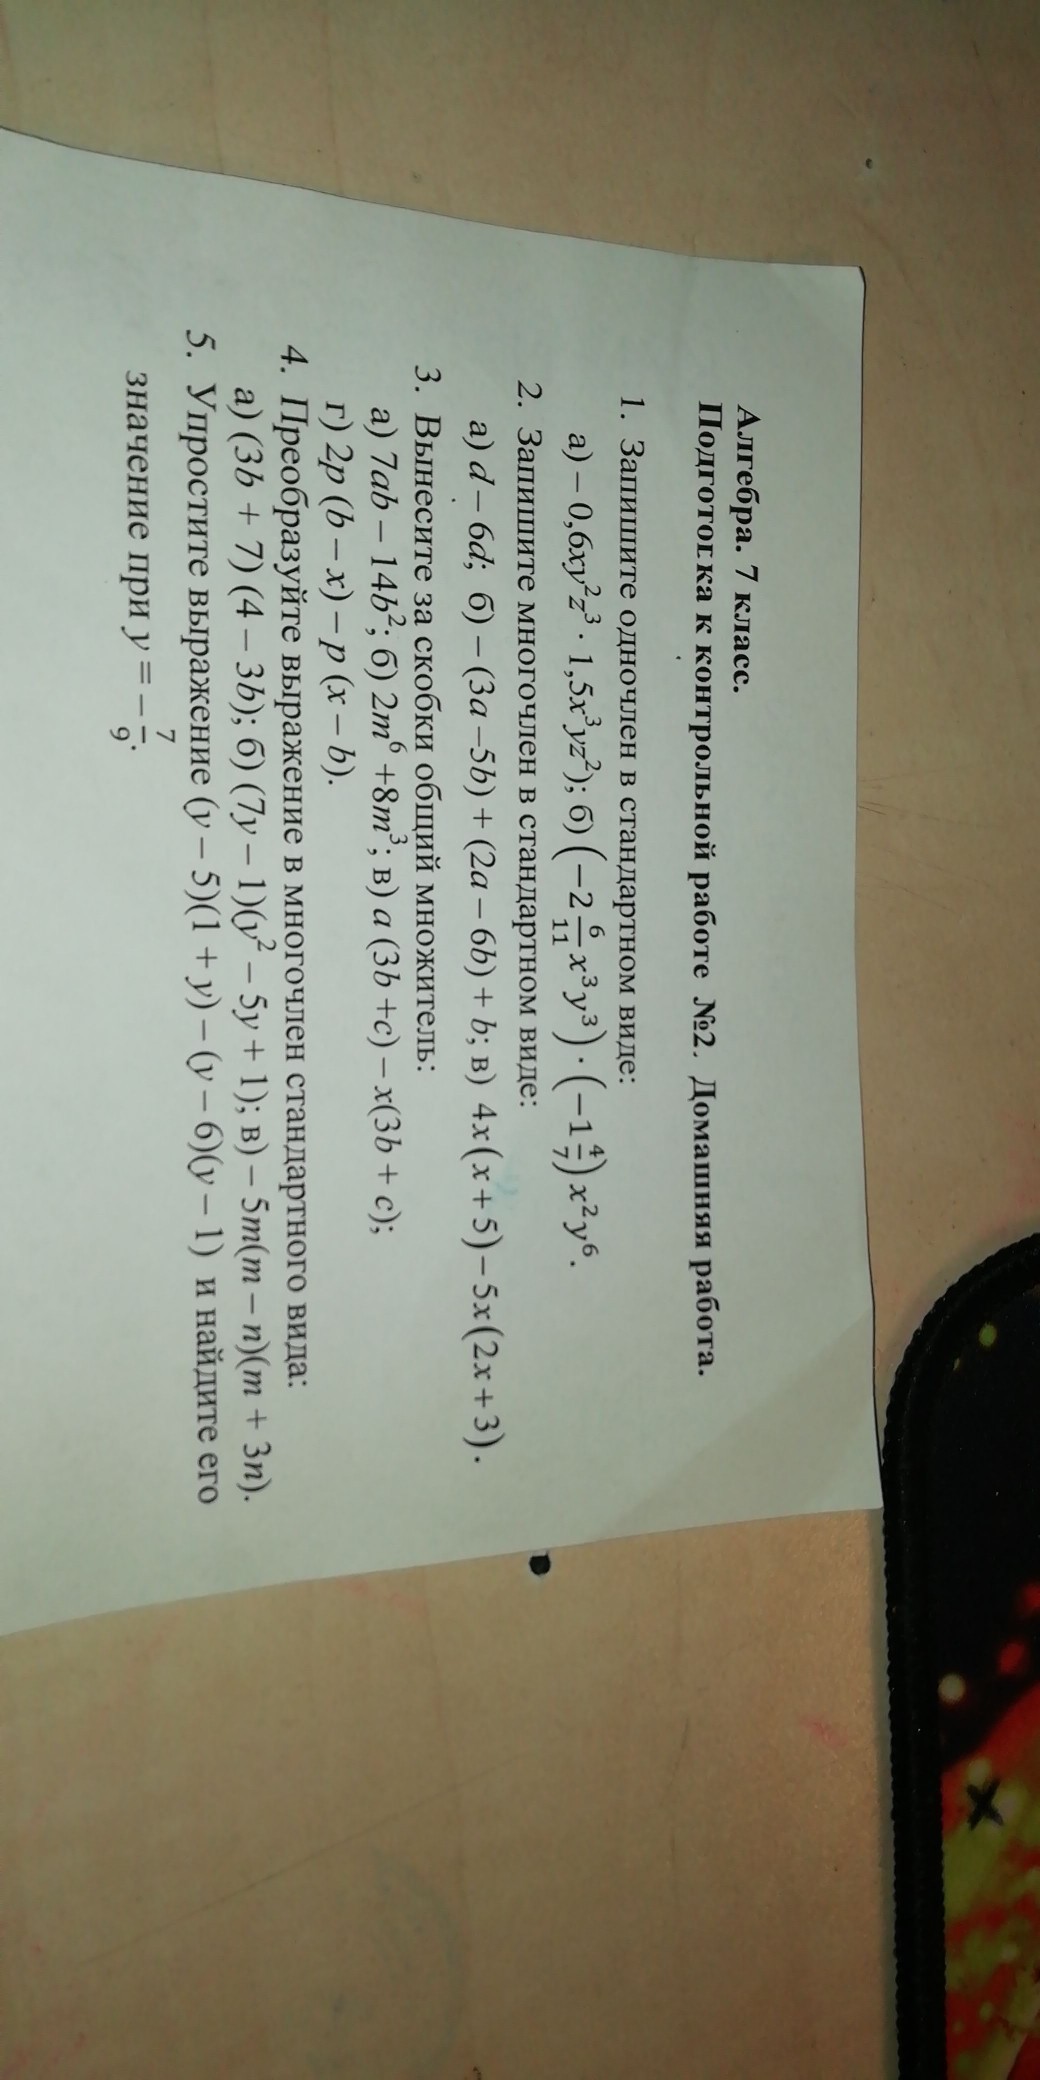 Алгебра. 7 класс.
Подготовка к контрольной работе №2. Домашняя работа.
1. Запишите одночлен в стандартном виде:
а) – 0,6xy²z³ · 1,5x³yz²); б) (−2 6/11 x³y³) · (−1 4/7) x²y⁶.
2. Запишите многочлен в стандартном виде:
а) d – 6d; б) – (3a –5b) + (2a – 6b) + b; в) 4x(x + 5) – 5x(2x + 3).
3. Вынесите за скобки общий множитель:
а) 7ab – 14b²; б) 2m⁶ +8m³; в) a (3b +c) – x(3b + c);
г) 2p (b – x) – p (x – b).
4. Преобразуйте выражение в многочлен стандартного вида:
а) (3b + 7) (4 – 3b); б) (7y – 1)(y² – 5y + 1); в) – 5m(m – n)(m + 3n).
5. Упростите выражение (y – 5)(1 + y) – (y – 6)(y – 1) и найдите его
значение при y = – 7/9.